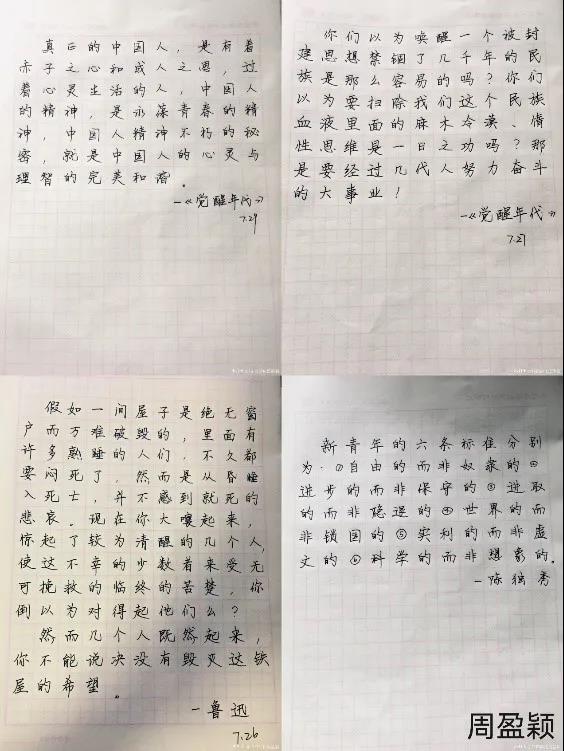 真正的中国人，是有着
赤子之心和成人之思，过
着心灵生活的人，中国人
的精神，是永葆青春的精
神，中国人精神不朽的秘
密，就是中国人的心灵与
理智的完美和谐。
—《觉醒年代》
7.29
你们以为唤醒一个被封
建思想禁锢了几千年的民
族是那么容易的吗？你们
以为要扫除我们这个民族
血液里面的麻木冷漠、惰
性思维是一日之功吗？那
是要经过几代人努力奋斗
的大事业！
—《觉醒年代》
7.27
假如一间屋子是绝无窗
户而万难破毁的，里面有
许多熟睡的人们，不久都
要闷死了，然而是从昏睡
入死亡，并不感到就死的
悲哀。现在你大嚷起来，
惊起了较为清醒的几个人，
使这不幸的少数者来受无
可挽救的临终的苦楚，你
倒以为对得起他们么？
然而几个人既然起来，
你不能说决没有毁灭这铁
屋的希望。
—鲁迅
7.26
新青年的六条标准分别
为：①自由的而非奴隶的②
进步的而非保守的③进取
的而非隐退的④世界的而
非锁国的⑤实利的而非虚
文的⑥科学的而非想象的。
—陈独秀
周盈颖